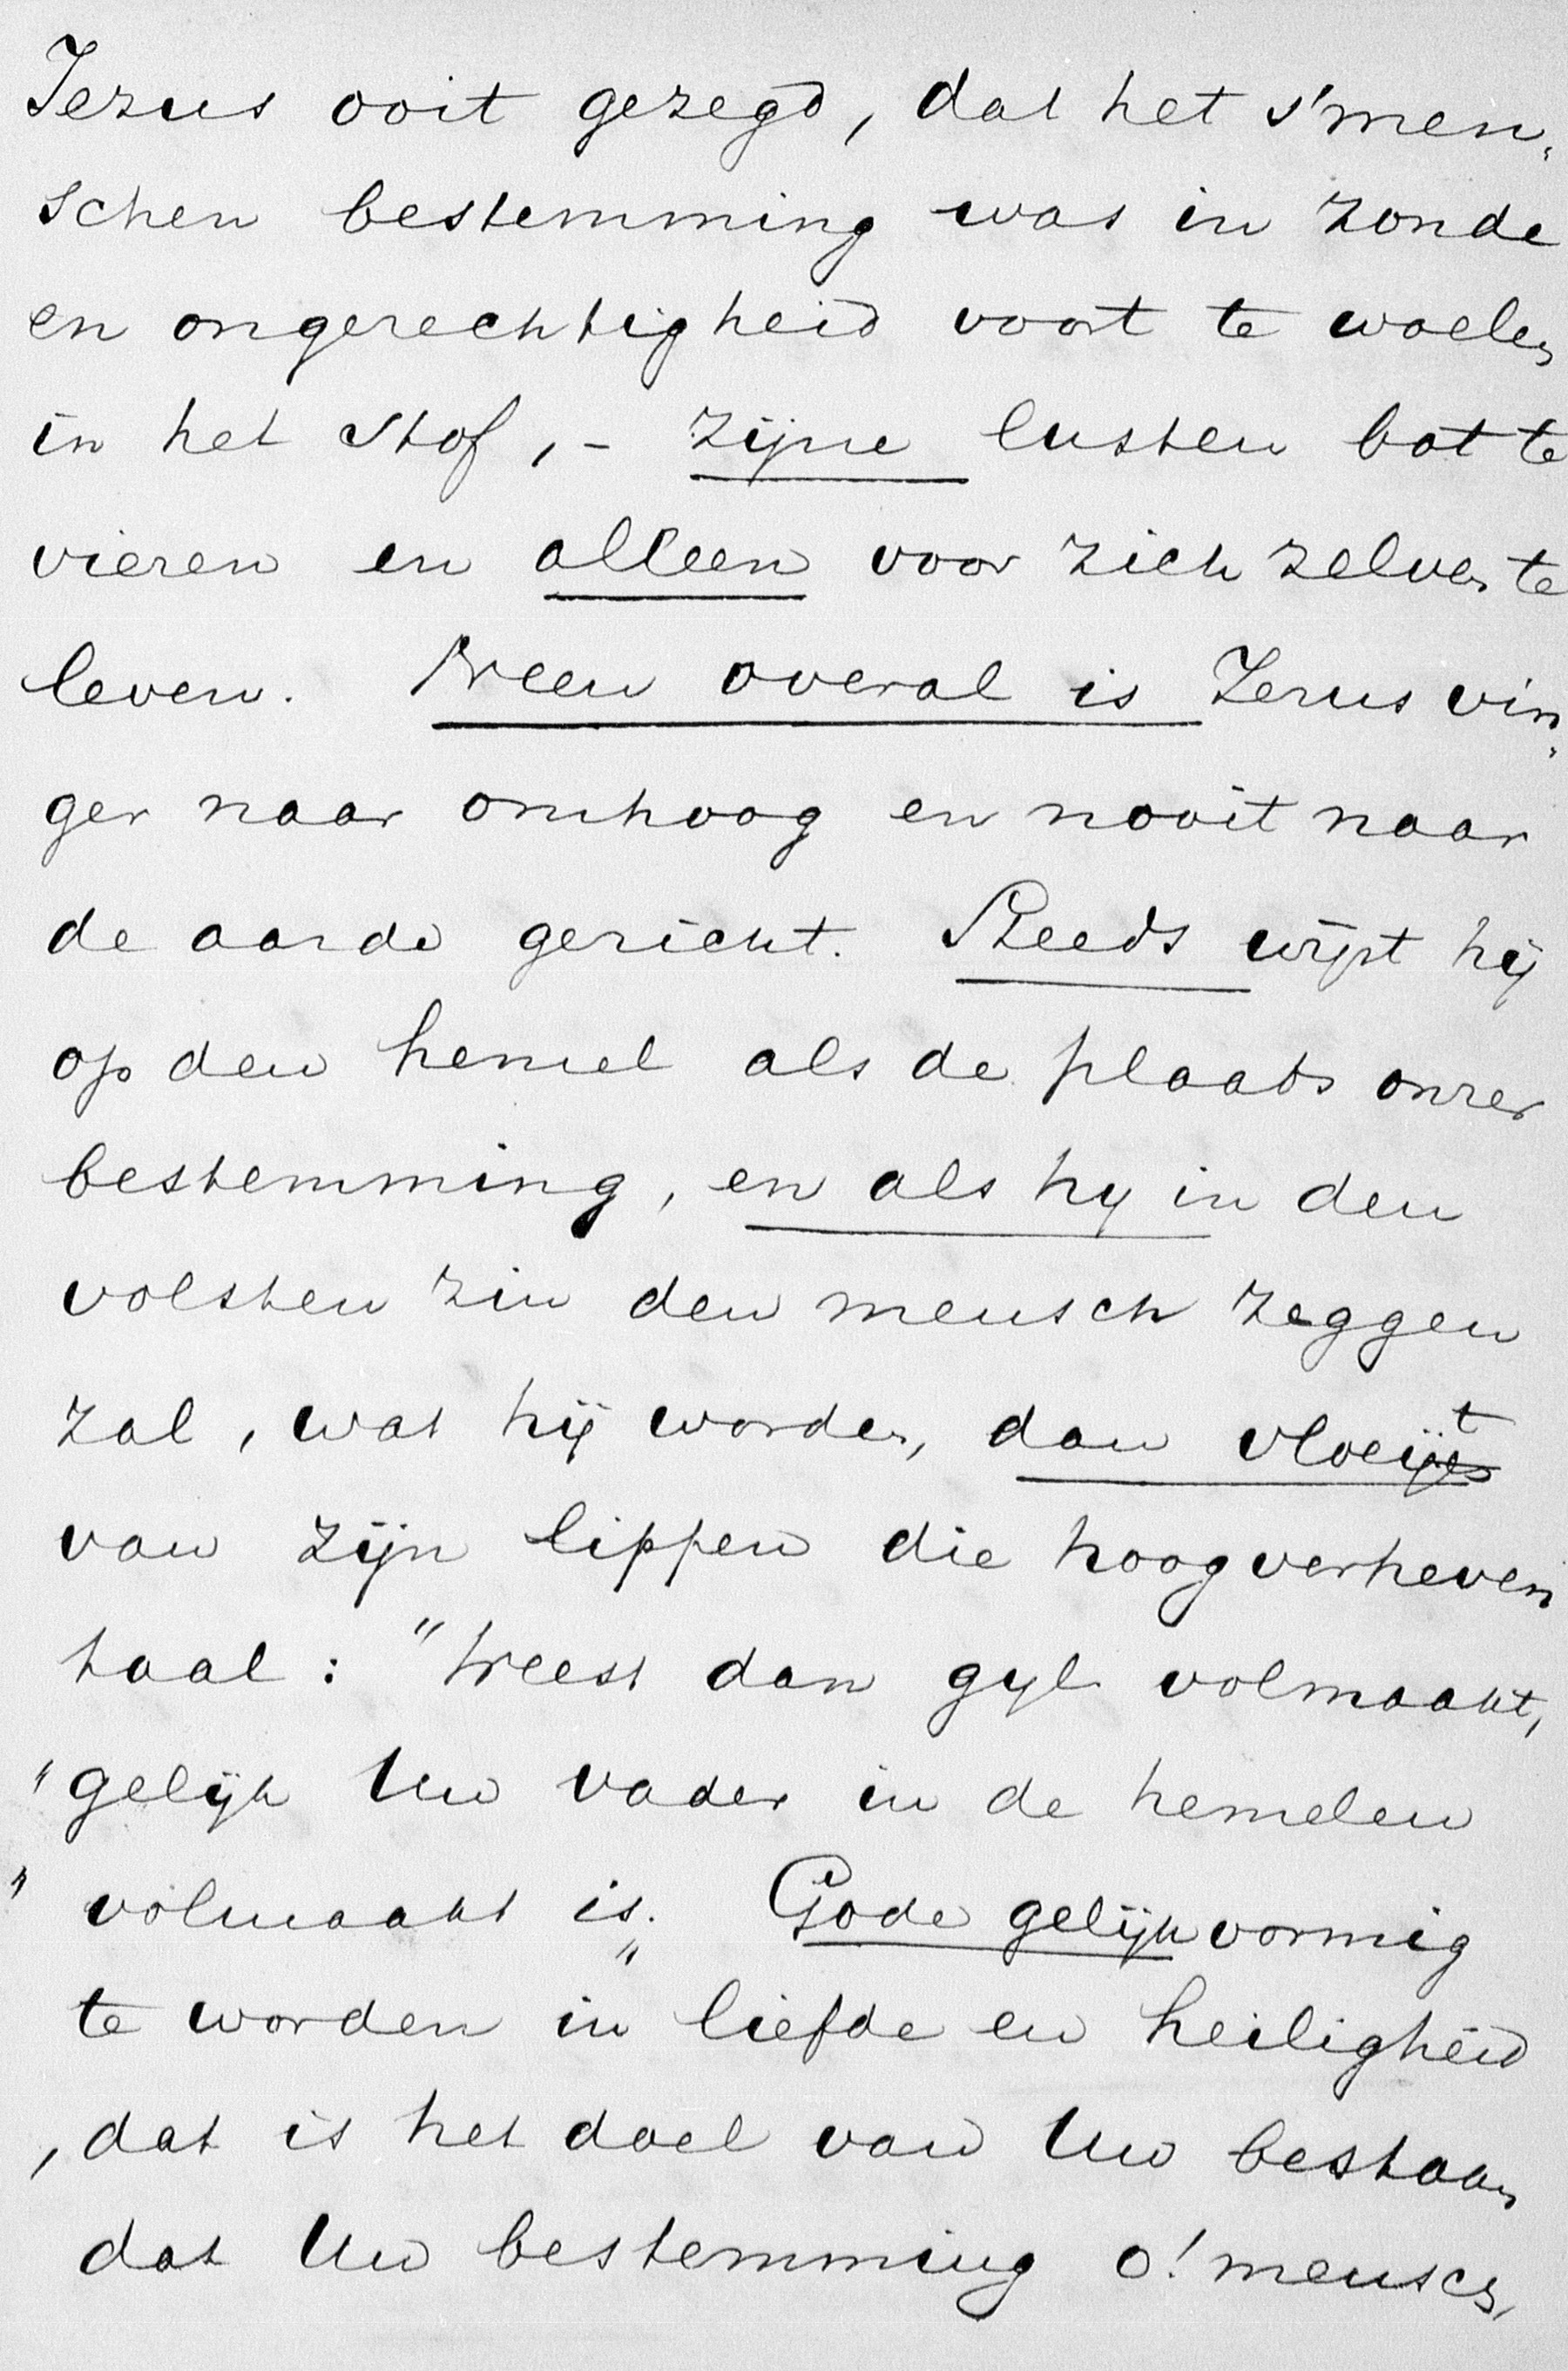 Jezus ooit gezegd, dat het s'men„
schen bestemming was in zonde
en ongerechtigheid voort te woelen
in het stof, - zijne lusten bot te
vieren en alleen voor zich zelven te
leven. Neen overal is Jezus vin„
ger naar omhoog en nooit naar
de aarde gericht. Steeds wijst hij
op den hemel als de plaats onzer
bestemming, en als hy in den
volsten zin den mensch zeggen
zal, wat hij worden, dan vloeijt
van zijn lippen die hoogverheven
taal: "Weest dan gyl. volmaakt,
"gelijk Uw vader in de hemelen
"volmaakt is." Gode gelijkvormig
te worden in liefde en heiligheid
, dat is het doel van Uw bestaan
dat Uw bestemming o! mensch,